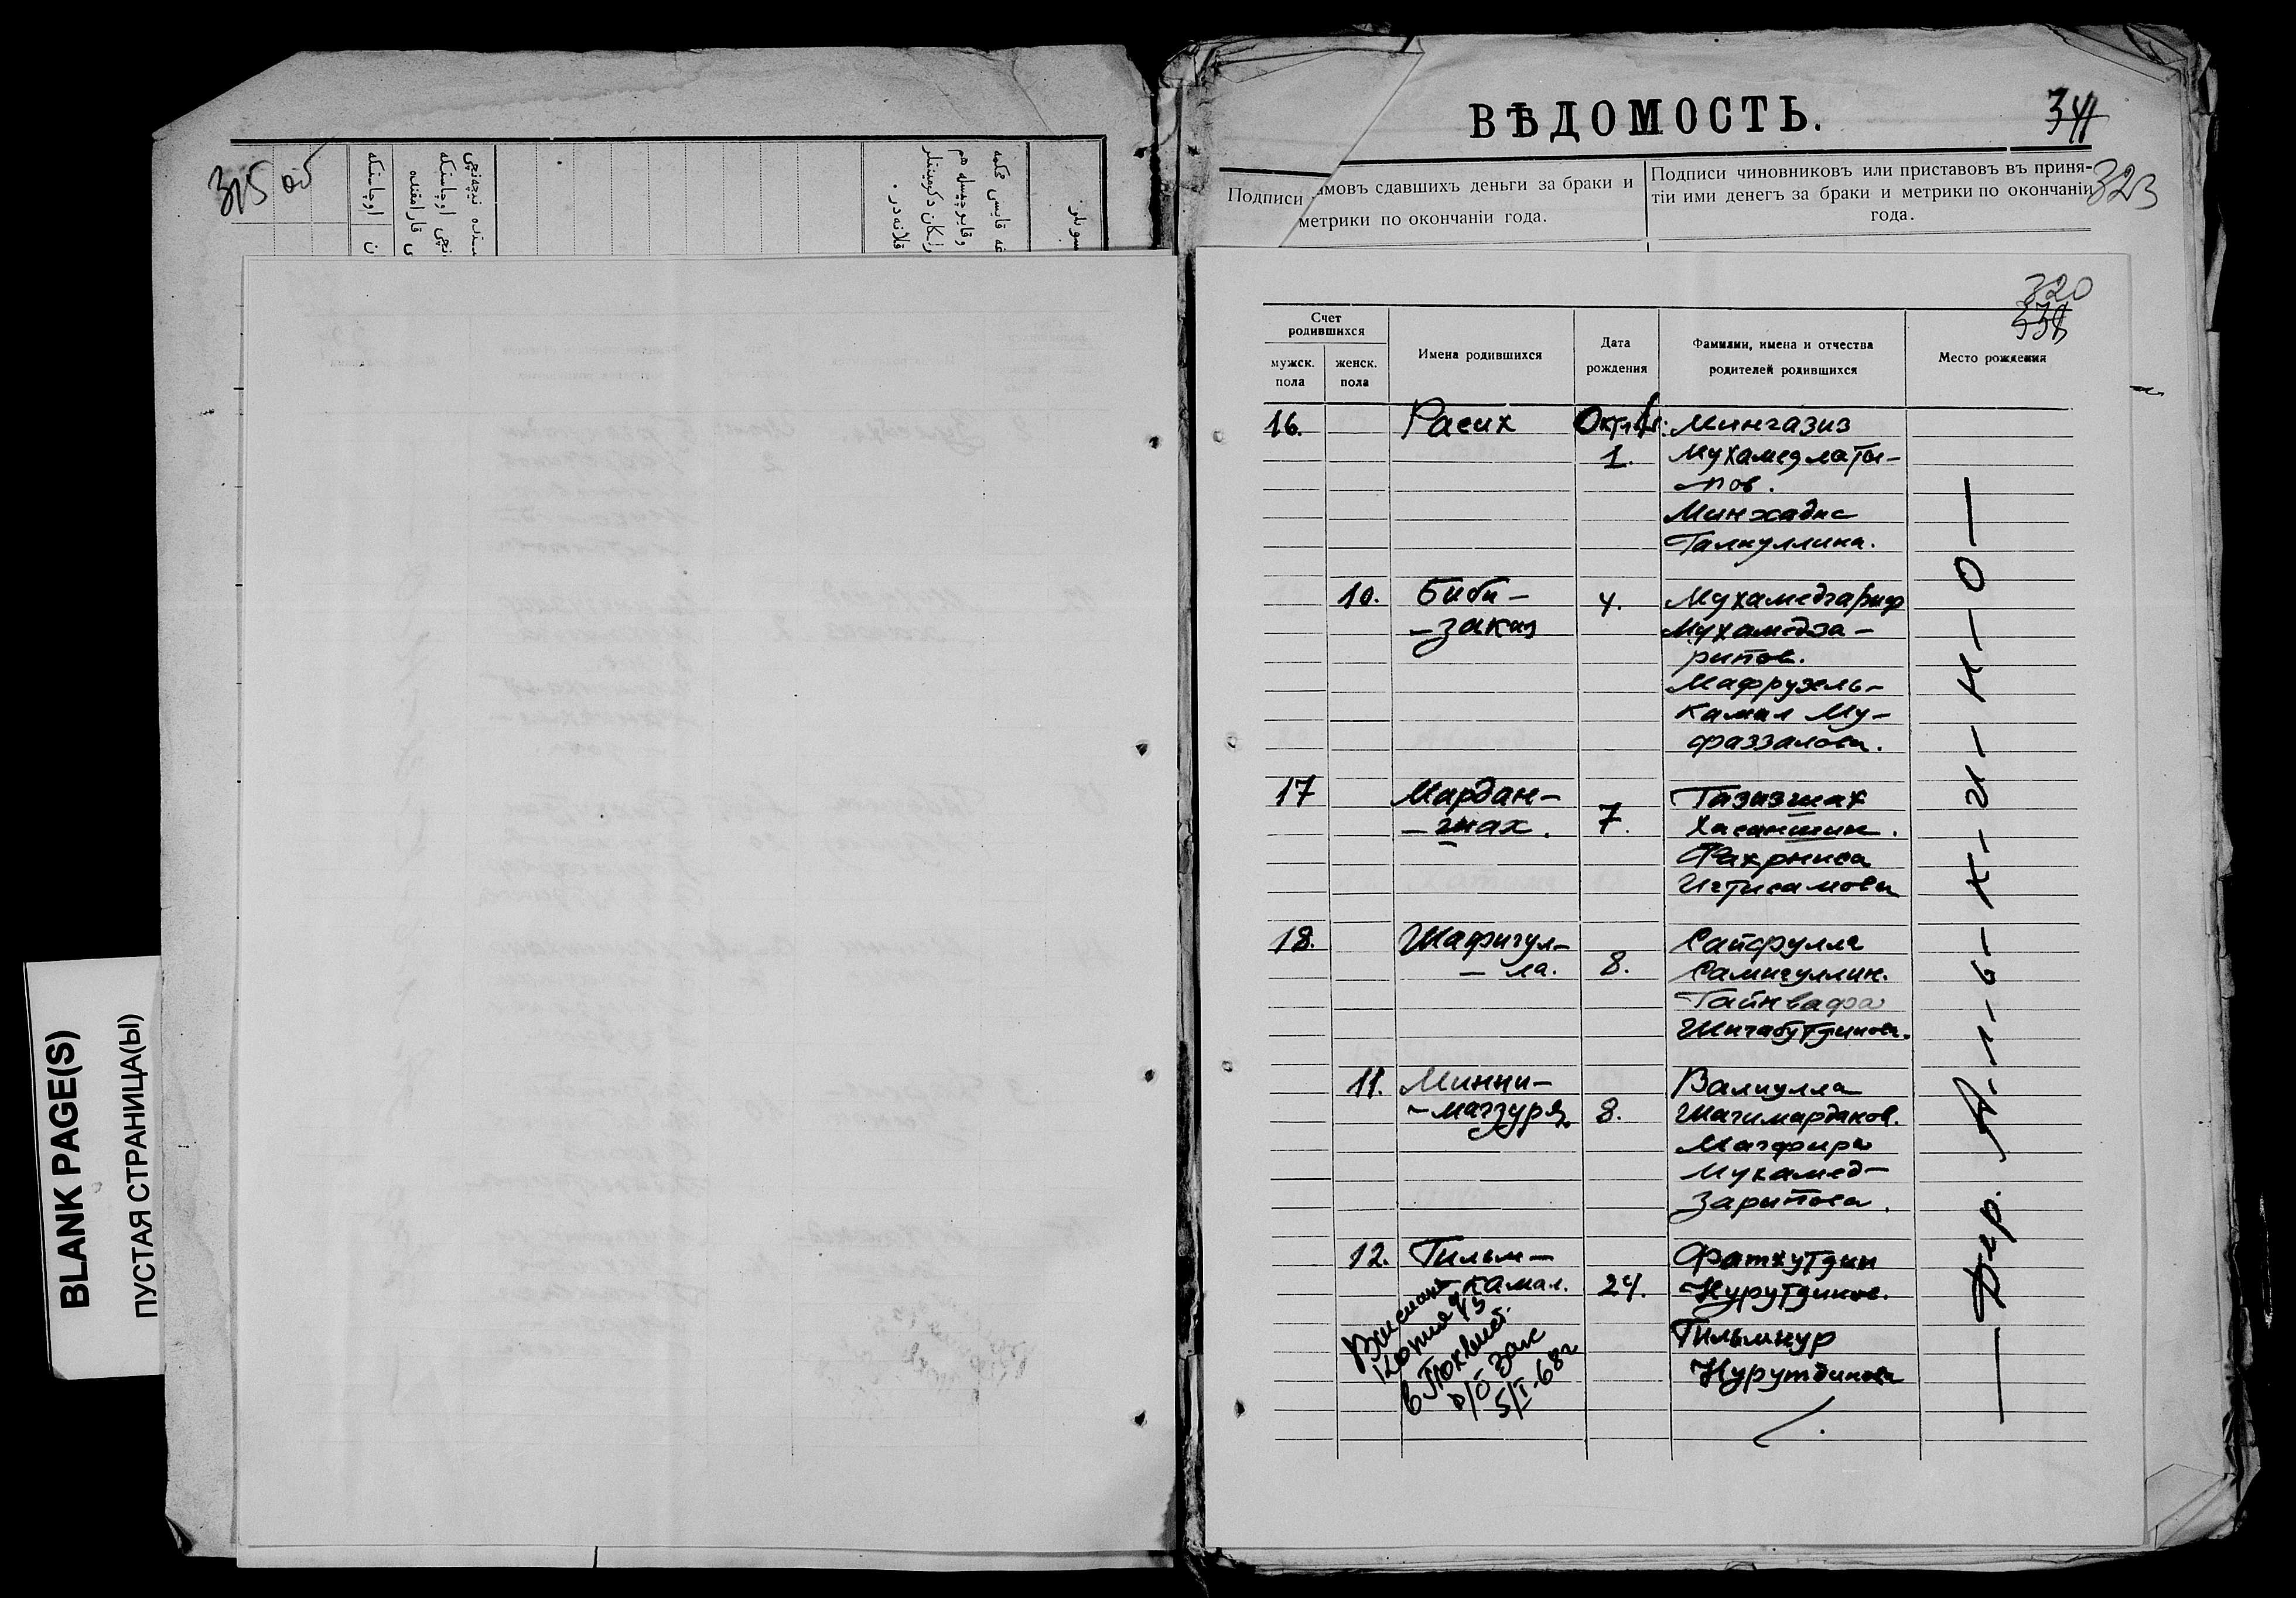 315 об
BLANK PAGE(S)
ПУСТАЯ СТРАНИЦА(Ы)
ВѢДОМОСТЬ.
341
323
Подписи
амовъ сдавшихъ деньги за браки и
метрики по окончанiи года.
Подписи чиновниковъ или приставовъ въ приня-
тiи ими денегъ за браки и метрики по окончанiи
года.
320
338
Счет
родившихся
мужск.
пола
женск.
пола
Имена родившихся
Дата
рождения
Фамилии, имена и отчества
родителей родившихся
Место рождения
16. Расих Октябр. Мингазиз
1. Мухамедлаты-
пов.
Минхадис
Галиуллина.
10. Биби- 4. Мухамедгариф
-закия Мухамедза-
рипов.
Мафрузель-
камал Му-
фаззалова.
17 Мардан- Газизшах
-шах. 7. Хасаншин.
Фахрниса
Игтисамова
18. Шафигул- Сайфулла
-ла. 8. Самигуллин.
Гайнвафа
Шигабутдинова.
11. Минни- Валиулла
-магзуря 8. Шагимарданов.
Магфира
Мухамед-
Зарипова.
12. Гильм- Фатхутдин
-камал. 24. Нурутдинов.
Гильминур
Нурутдинова
Выслана
копия
р/о загс
5/I-68г
Дер.